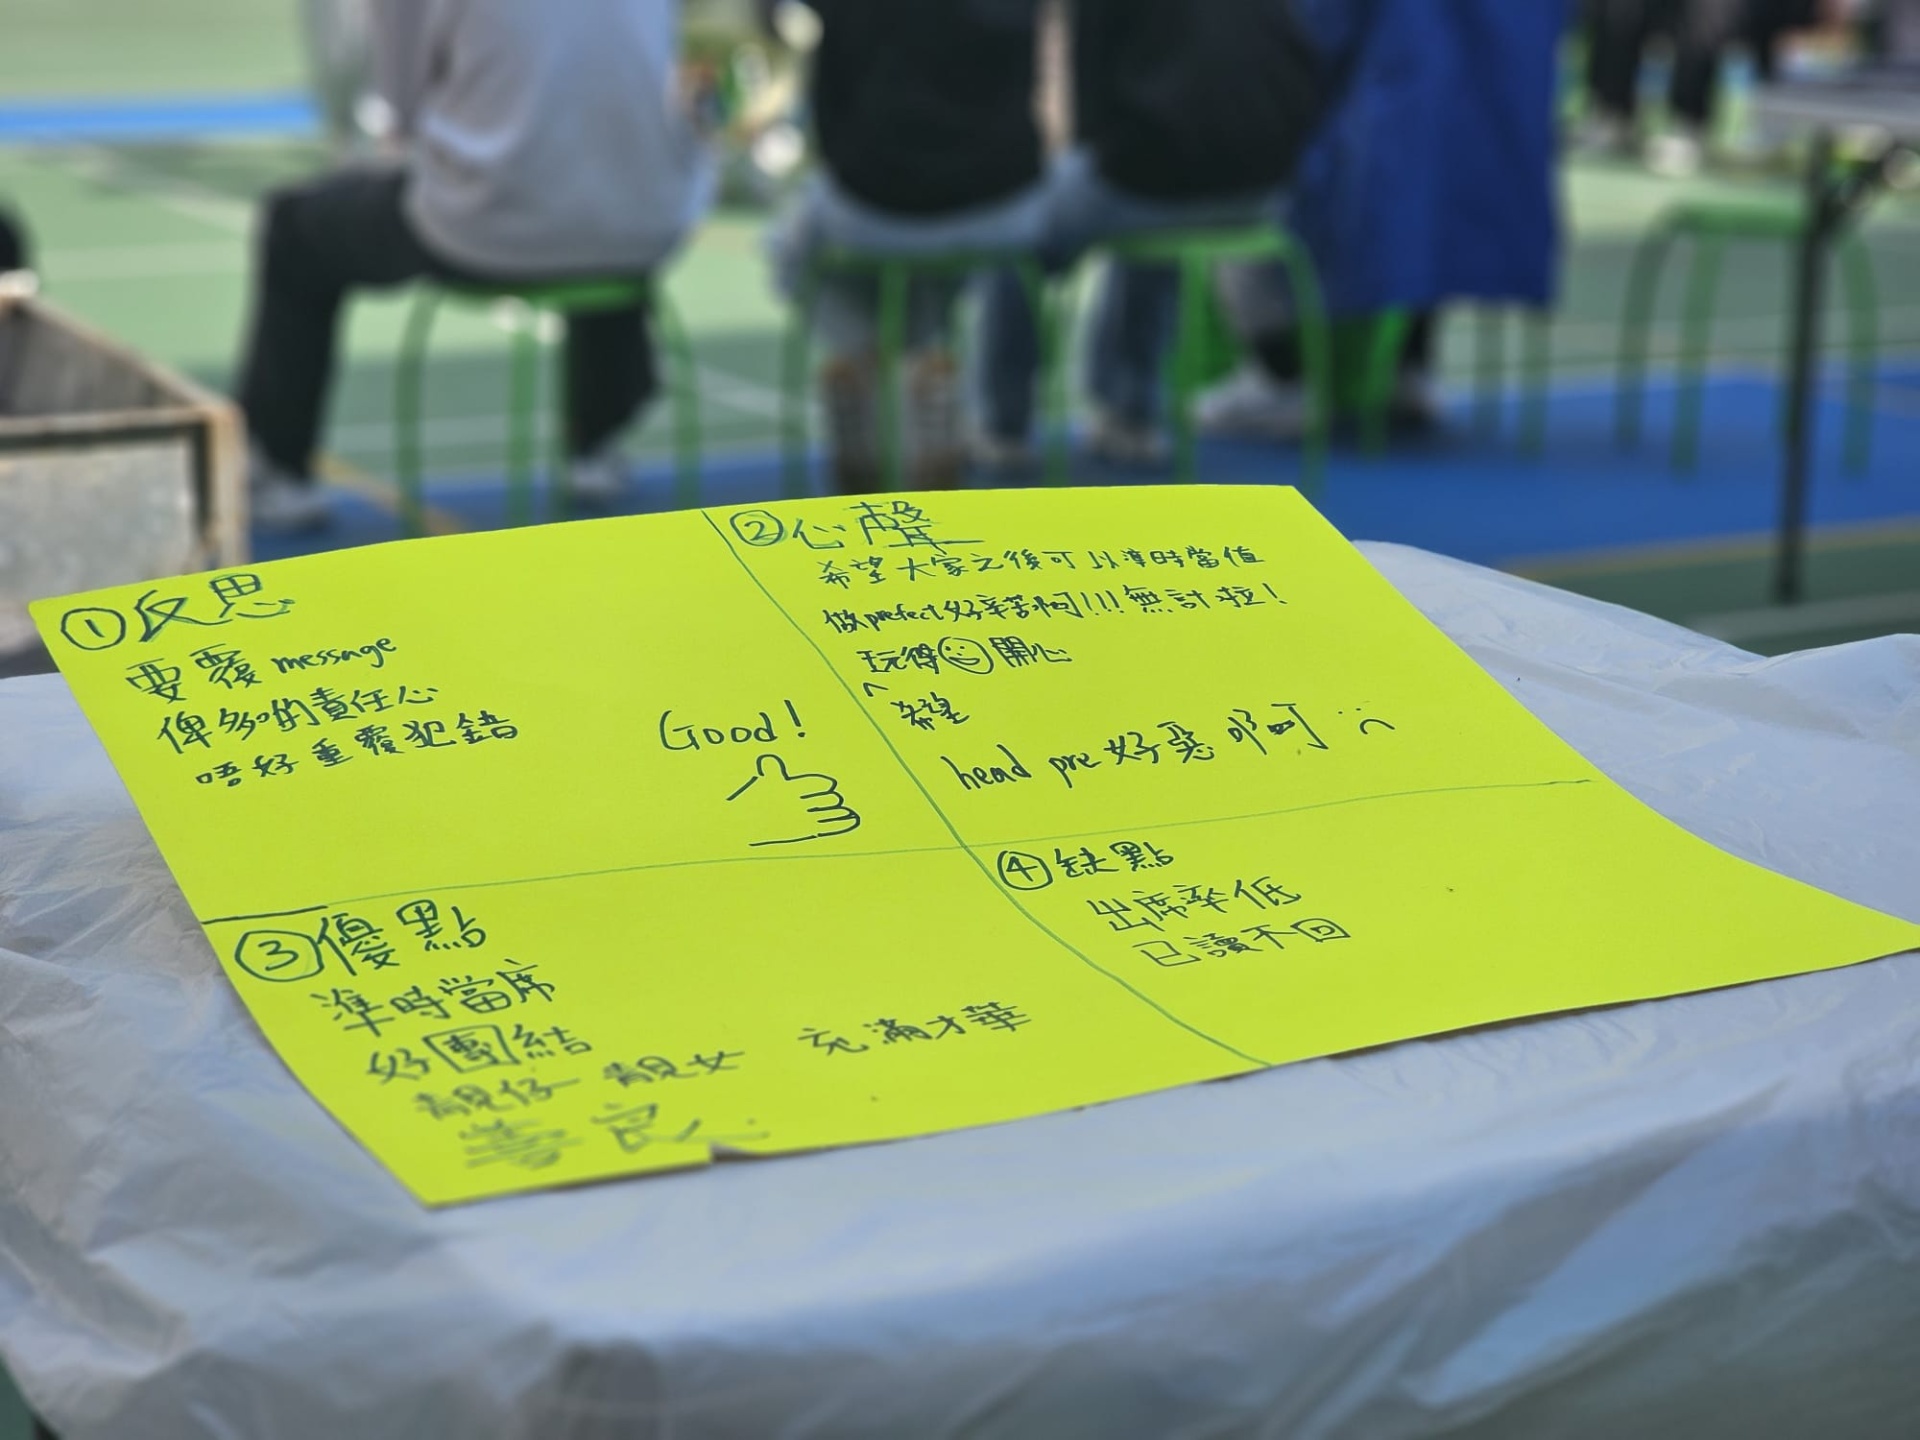 ① 反思
要覆 message
俾多啲責任心
唔好重覆犯錯
Good!
② 心聲
希望大家之後可以準時當值
做prefect好辛苦啊!!!無計啦!
玩得開心
^
希望
head pre 好惡㖭啊
③ 優點
準時當席
好團結
靚仔 靚女 充滿才華
善良
④ 缺點
出席率低
已讀不回